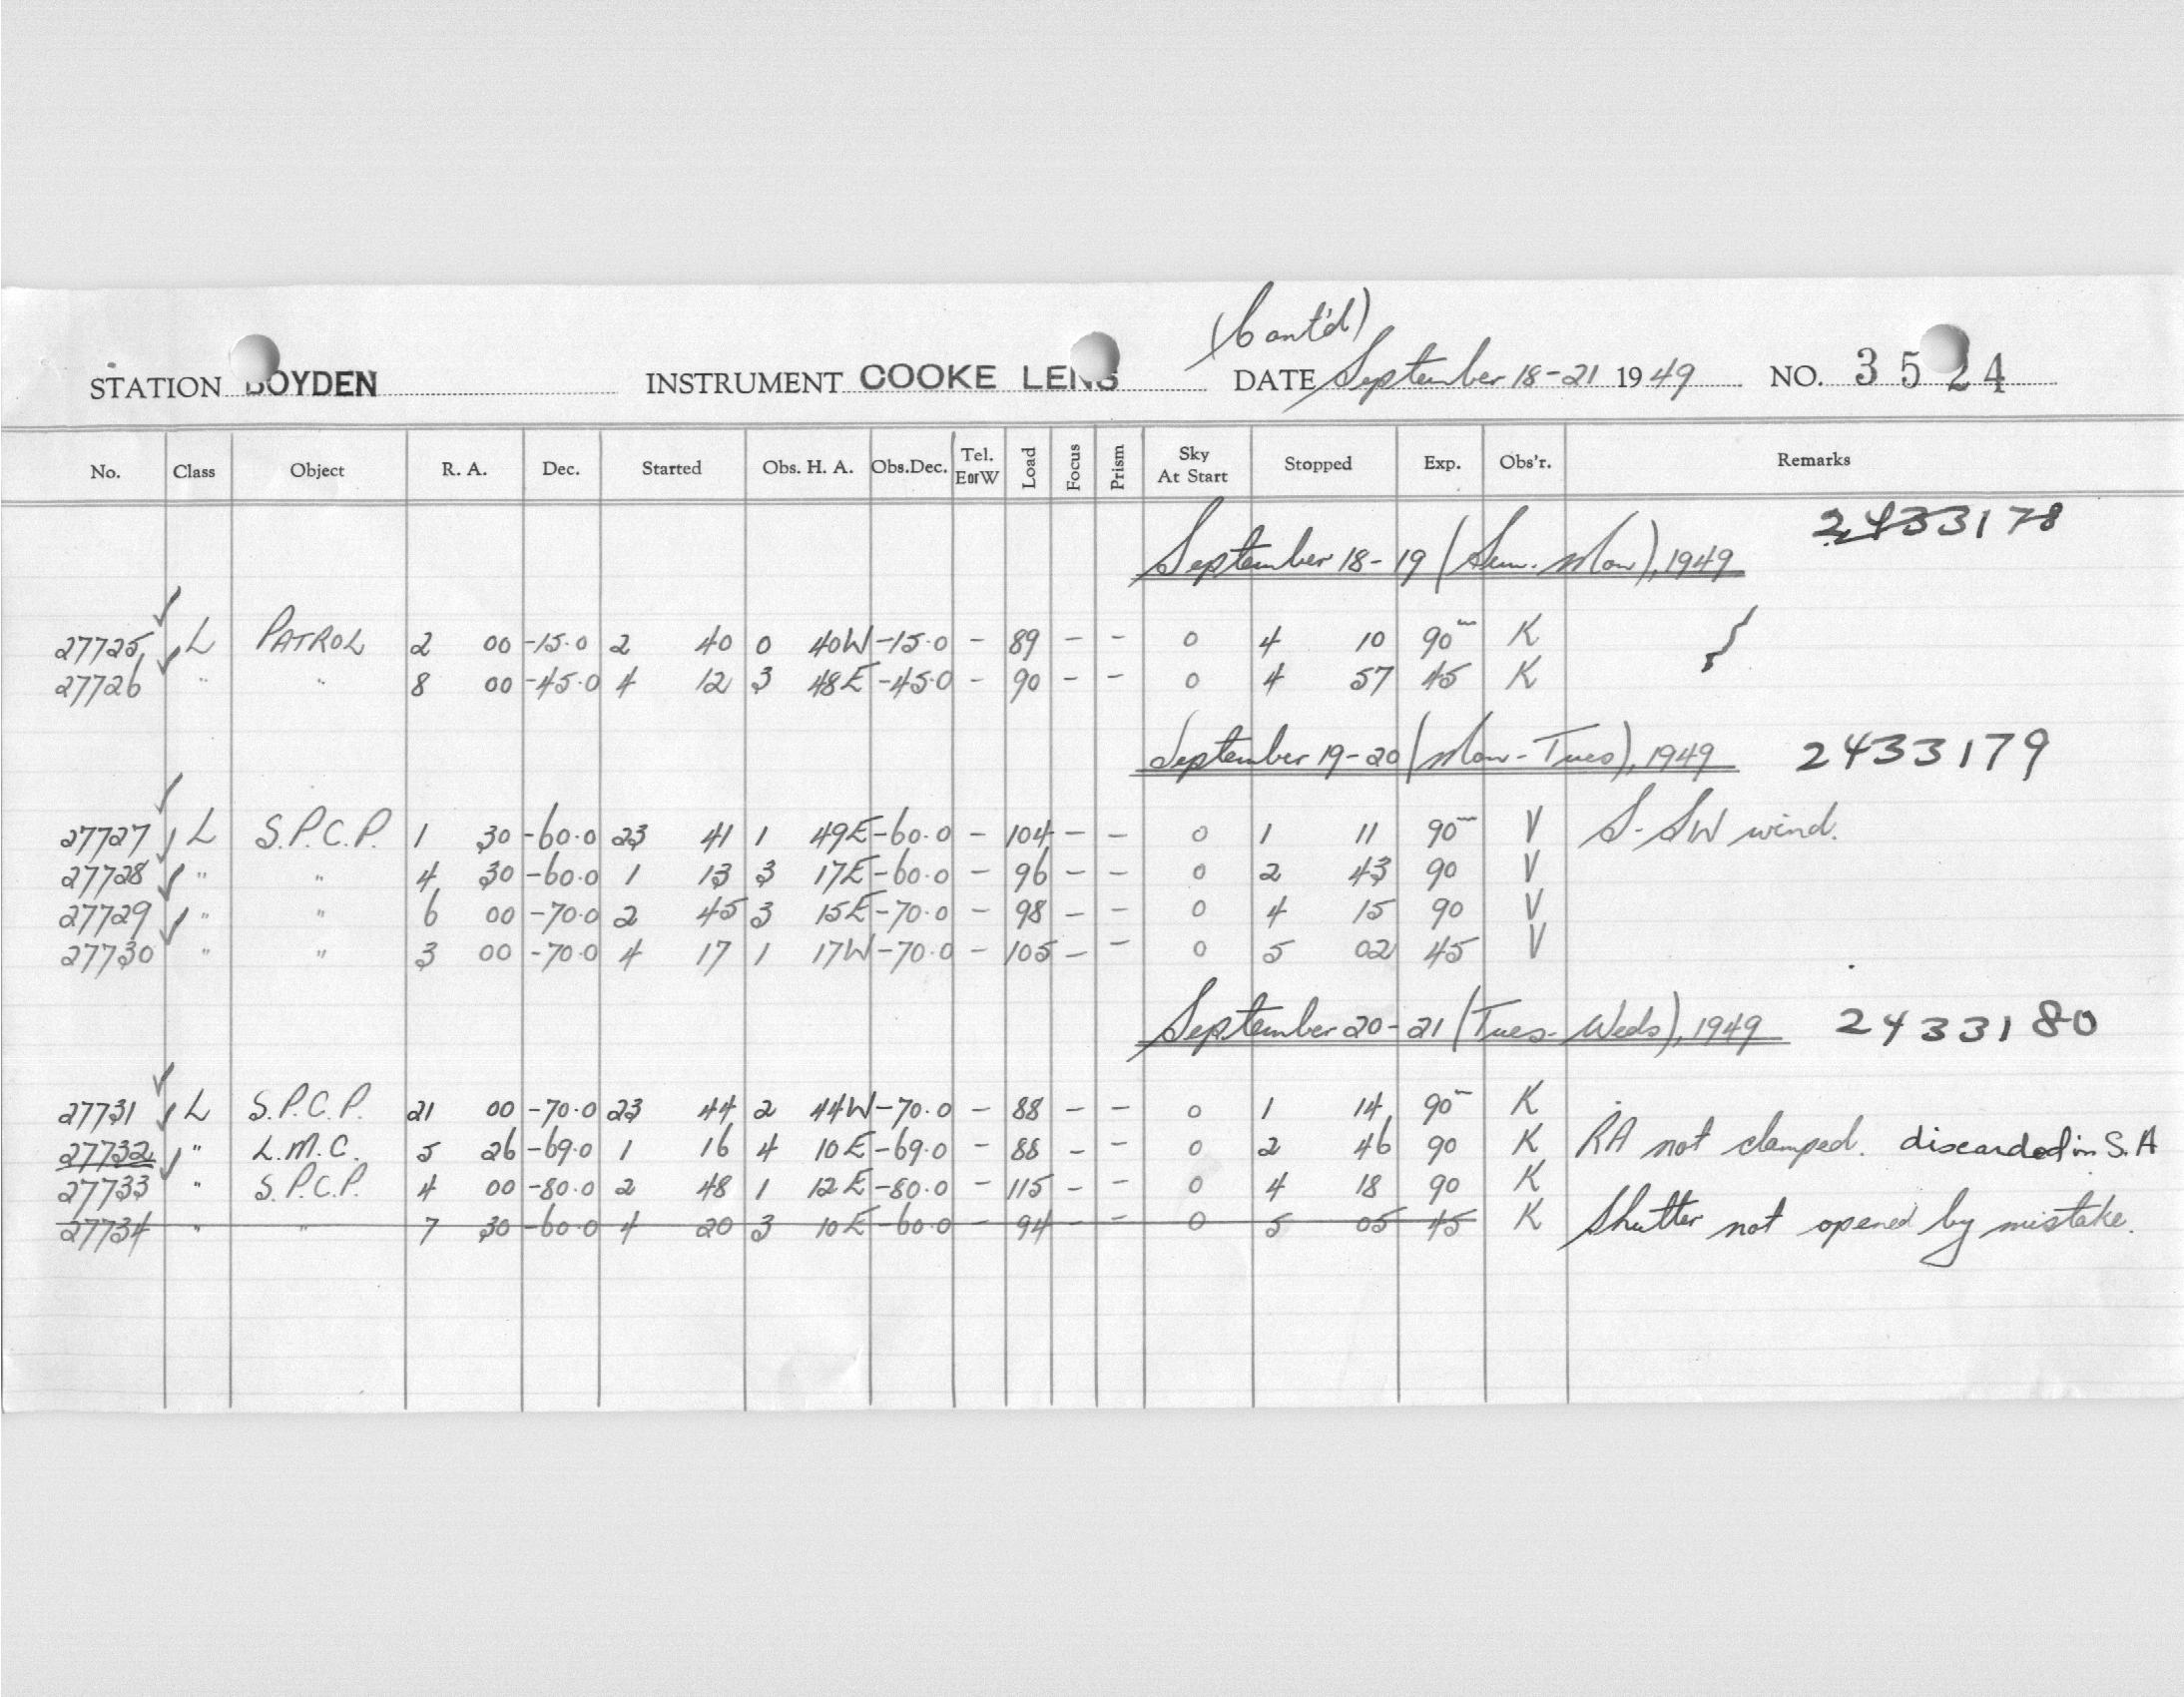 (Cont'd)
STATION BOYDEN INSTRUMENT COOKE LENS DATE September 18-21 1949 NO. 3524
No. Class Object R. A. Dec. Started Obs. H. A. Obs.Dec. Tel. E or W Load Focus Prism Sky At Start Stopped Exp. Obs'r. Remarks
September 18-19 (Sun.-Mon), 1949 2433178
27725 L PATROL 2 00 -15.0 2 40 0 40W -15.0 - 89 - - 0 4 10 90m K
27726 " " 8 00 -45.0 4 12 3 48E -45.0 - 90 - - 0 4 57 45 K
September 19-20 (Mon-Tues), 1949 2433179
27727 L S.P.C.P. 1 30 -60.0 23 41 1 49E -60.0 - 104 - - 0 1 11 90m V S-SW wind.
27728 " " 4 30 -60.0 1 13 3 17E -60.0 - 96 - - 0 2 43 90 V
27729 " " 6 00 -70.0 2 45 3 15E -70.0 - 98 - - 0 4 15 90 V
27730 " " 3 00 -70.0 4 17 1 17W -70.0 - 105 - - 0 5 02 45 V
September 20-21 (Tues-Weds), 1949 2433180
27731 L S.P.C.P. 21 00 -70.0 23 44 2 44W -70.0 - 88 - - 0 1 14 90m K
27732 " L.M.C. 5 26 -69.0 1 16 4 10E -69.0 - 88 - - 0 2 46 90 K RA not clamped. discarded in S.A
27733 " S.P.C.P. 4 00 -80.0 2 48 1 12E -80.0 - 115 - - 0 4 18 90 K
27734 " " 7 30 -60.0 4 20 3 10E -60.0 - 94 - - 0 5 05 45 K Shutter not opened by mistake.